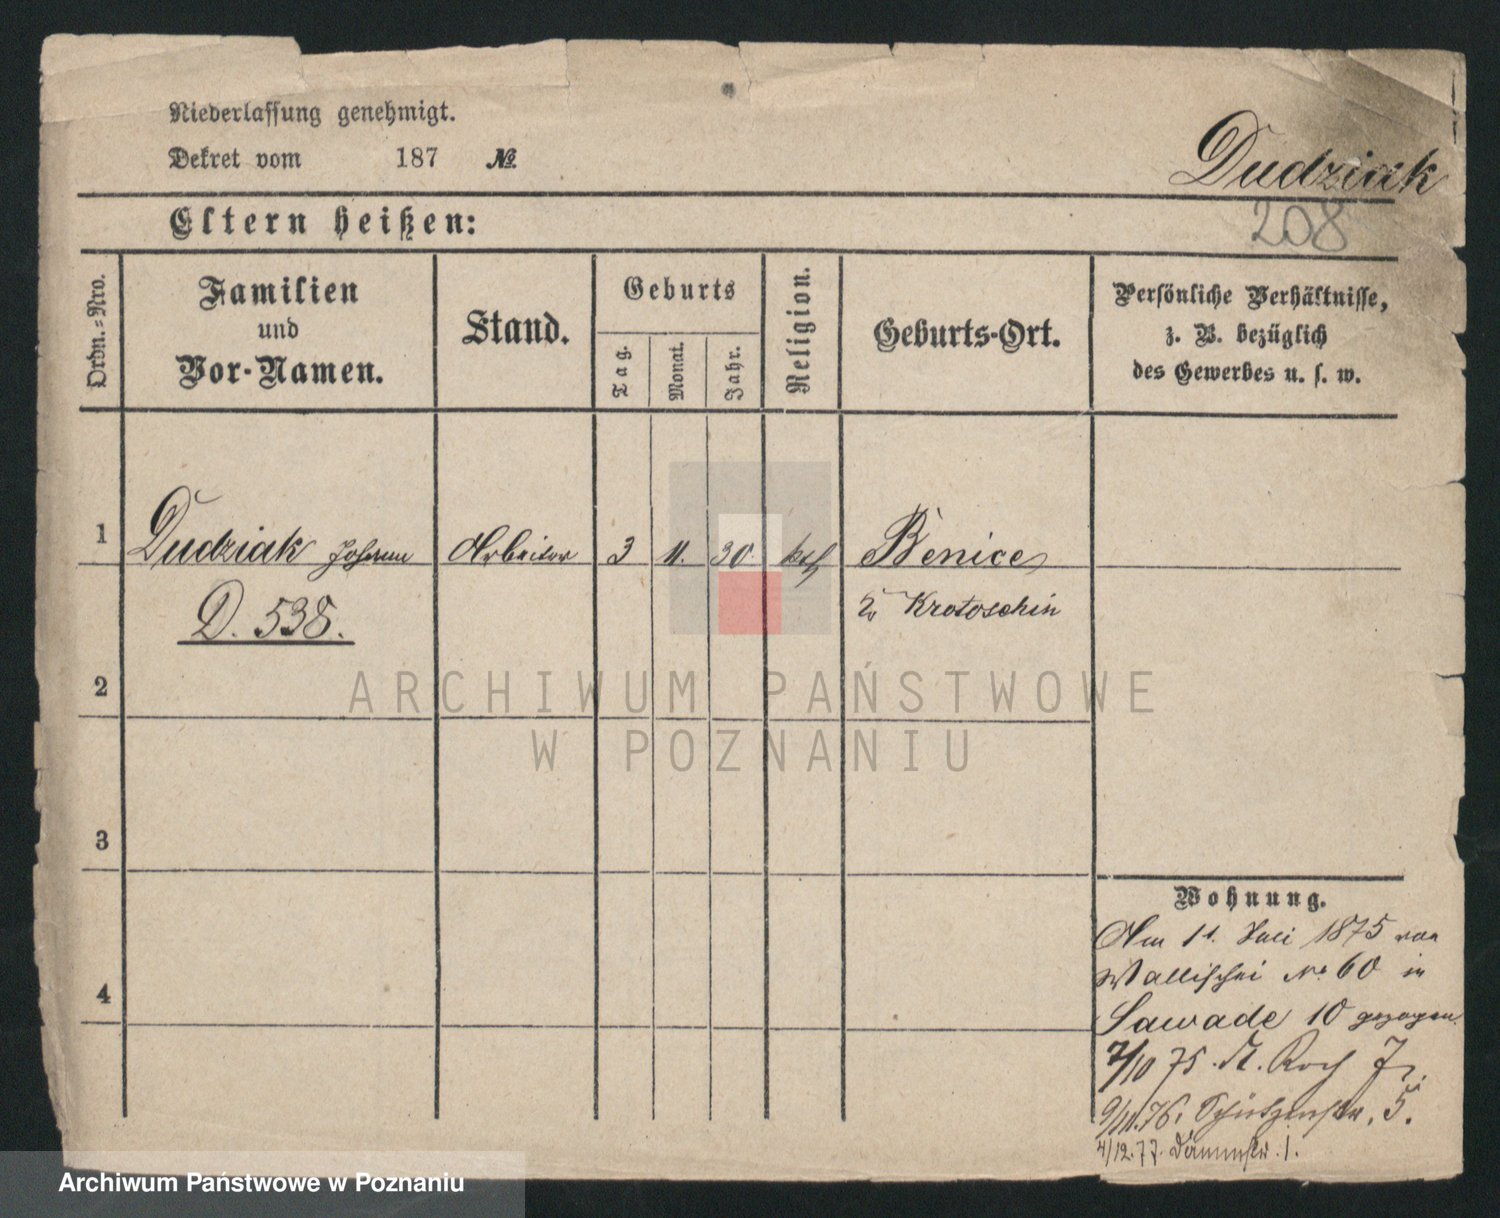 Niederlassung genehmigt.
Dekret vom 187 №
Dudziak
208
Eltern heißen:
Ordn.=Nro.
Familien
und
Vor-Namen.
Stand.
Geburts
Tag.
Monat.
Jahr.
Religion.
Geburts-Ort.
Persönliche Verhältnisse,
z. B. bezüglich
des Gewerbes u. s. w.
1 Dudziak Johann Arbeiter 3 11. 30. kath Benice
D. 538.
Krotoschin
2
ARCHIWUM PAŃSTWOWE
W POZNANIU
3
Wohnung.
Am 11. Juli 1875 von
Wallischei No 60 in
Sawade 10 gezogen
4
7/10 75. St. Roch 7.
9/11.76. Schützenstr. 5.
4/12.77. Dammstr. 1.
Archiwum Państwowe w Poznaniu